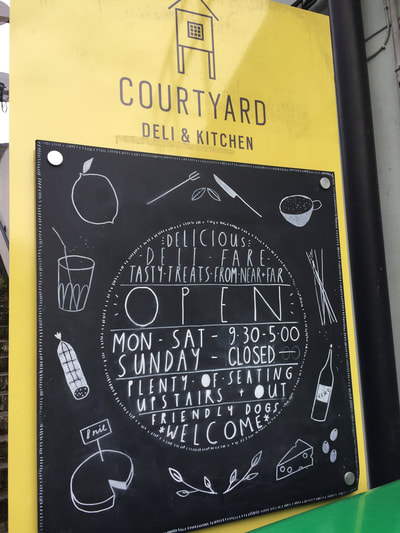 COURTYARD
DELI & KITCHEN
DELICIOUS
DELI · FARE
TASTY·TREATS·FROM·NEAR+FAR
OPEN
MON - SAT - 9·30-5·00
SUNDAY - CLOSED
PLENTY·OF·SEATING
UPSTAIRS + OUT
FRIENDLY DOGS
*WELCOME*